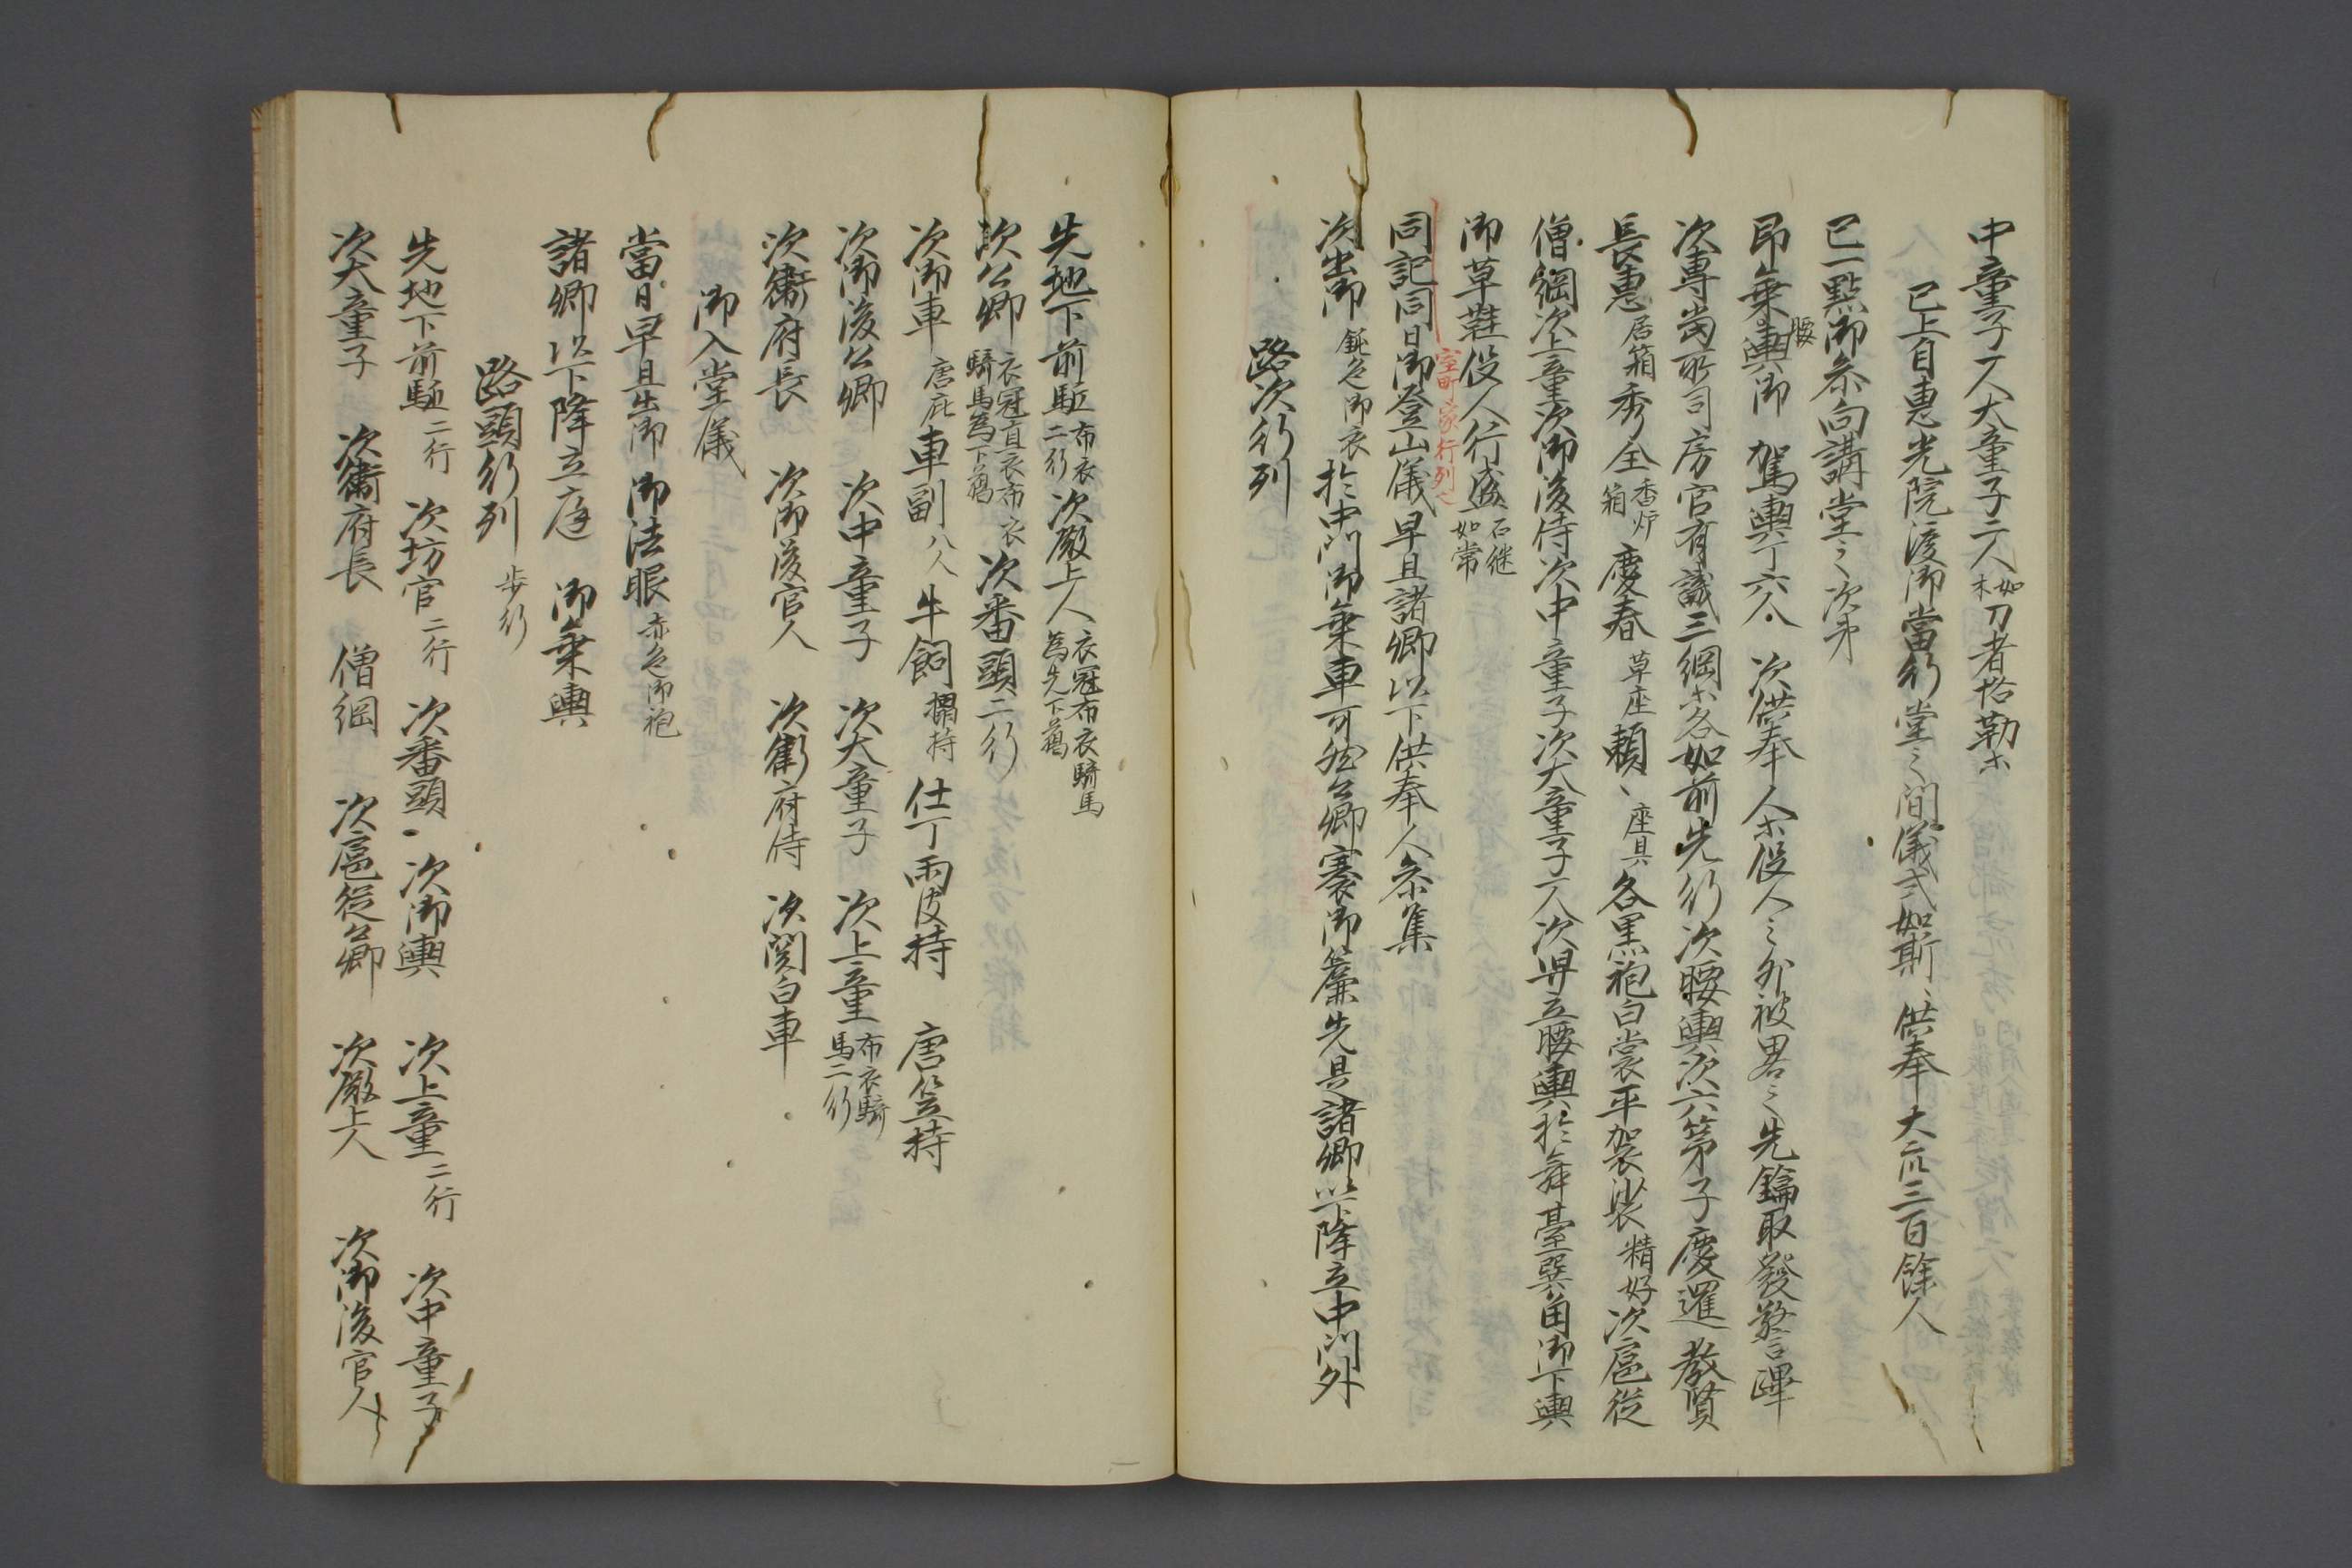 中童子一人大童子二人如木刀者恪勤ホ
已上自惠光院渡御當行堂之間儀式如斯、供奉大衆三百餘人
巳一點御参向講堂之次第
即乗腰輿御　駕輿丁六人　次供奉人ホ役人之外被略之先鎰取發警蹕
次專當所司房官有識三綱ホ各如前先行次腰輿次六第子慶運教賢
長惠居箱秀全香炉箱慶春草座頼、座具各黒袍白裳平袈裟精好次扈從
僧綱次上童次御後侍次中童子次大童子一人次舁立腰輿於舞臺巽角御下輿
御草鞋役人行盛石継如常
室町家行列也
同記同日御登山儀早旦諸卿以下供奉人参集
次出御鈍色御衣於中門御乗車可然公卿褰御簾先具諸卿以下降立中門外
路次行列
先地下前駈布衣二行次殿上人衣冠布衣騎馬為先下臈
次公卿衣冠直衣布衣騎馬為下臈次番頭二行
次御車唐庇車副八人牛飼榻持仕丁雨皮持　唐笠持
次御後公卿　次中童子　次大童子　次上童布衣騎馬二行
次衛府長　次御後官人　次衛府侍　次関白車
御入堂儀
當日早旦出御　御法眼赤色御袍
諸卿以下降立庭　御乗輿
路頭行列歩行
先地下前駈二行　次坊官二行　次番頭　次御輿　次上童二行　次中童子
次大童子　次衛府長　僧綱　次扈從公卿　次殿上人　次御後官人